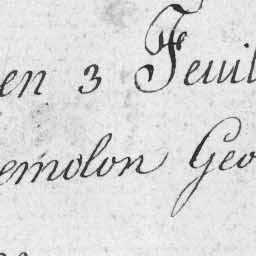 en 3 Feuil
emolon Geo